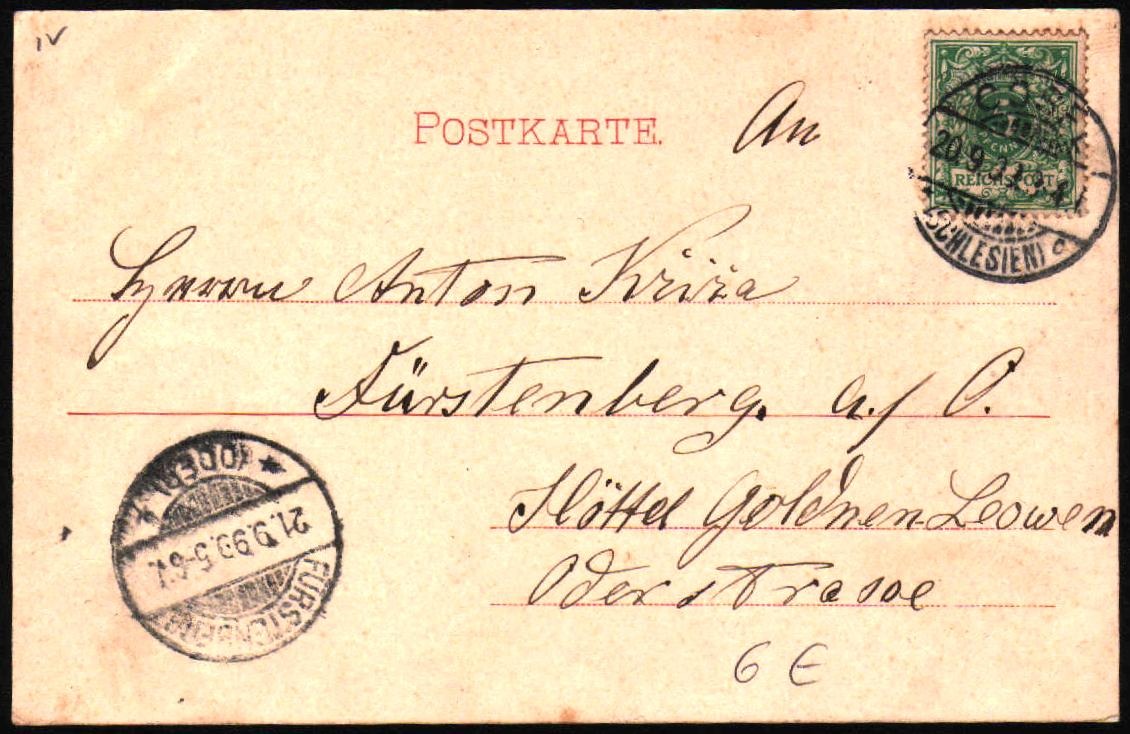 IV
POSTKARTE.
An
REICHSPOST
20.9.
(SCHLESIEN)
Herrn Anton Križa
Fürstenberg. a./ O.
Höttel Goldnen-Leowen
Oderstrasse
FÜRSTENBERG
21.9.99.5-6V.
(ODER)
6 €